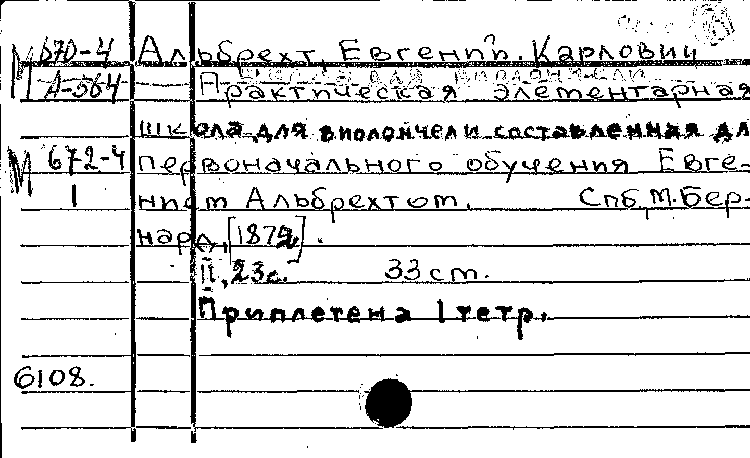 М 670-4 Альбрехт, Евгений Карлович
А-564 Практическая элементарная
школа для виолончели составленная дл
М 672-4 первоначального обучения Евге-
1 нием Альбрехтом. Спб, М. Бер-
нард, [1872].
II, 23с. 33 cm.
Приплетена 1 тетр.
6108.